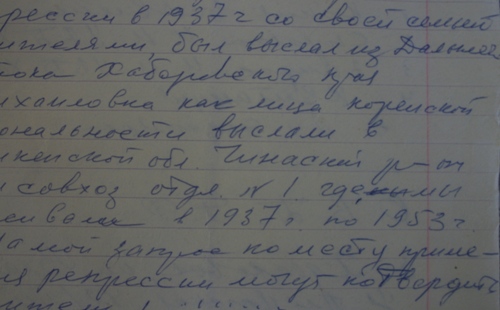 рессии в 1937 г со своей семьей
ителями был выслан из Дальнего
Хабаровского края
как лица корейской
ональности выслали в
кенской обл. Чиназский р-он
совхоз отдел. № 1 где мы
в 1937 г по 1953 г.
мой запрос по месту приме-
я репрессии могут подтвердить